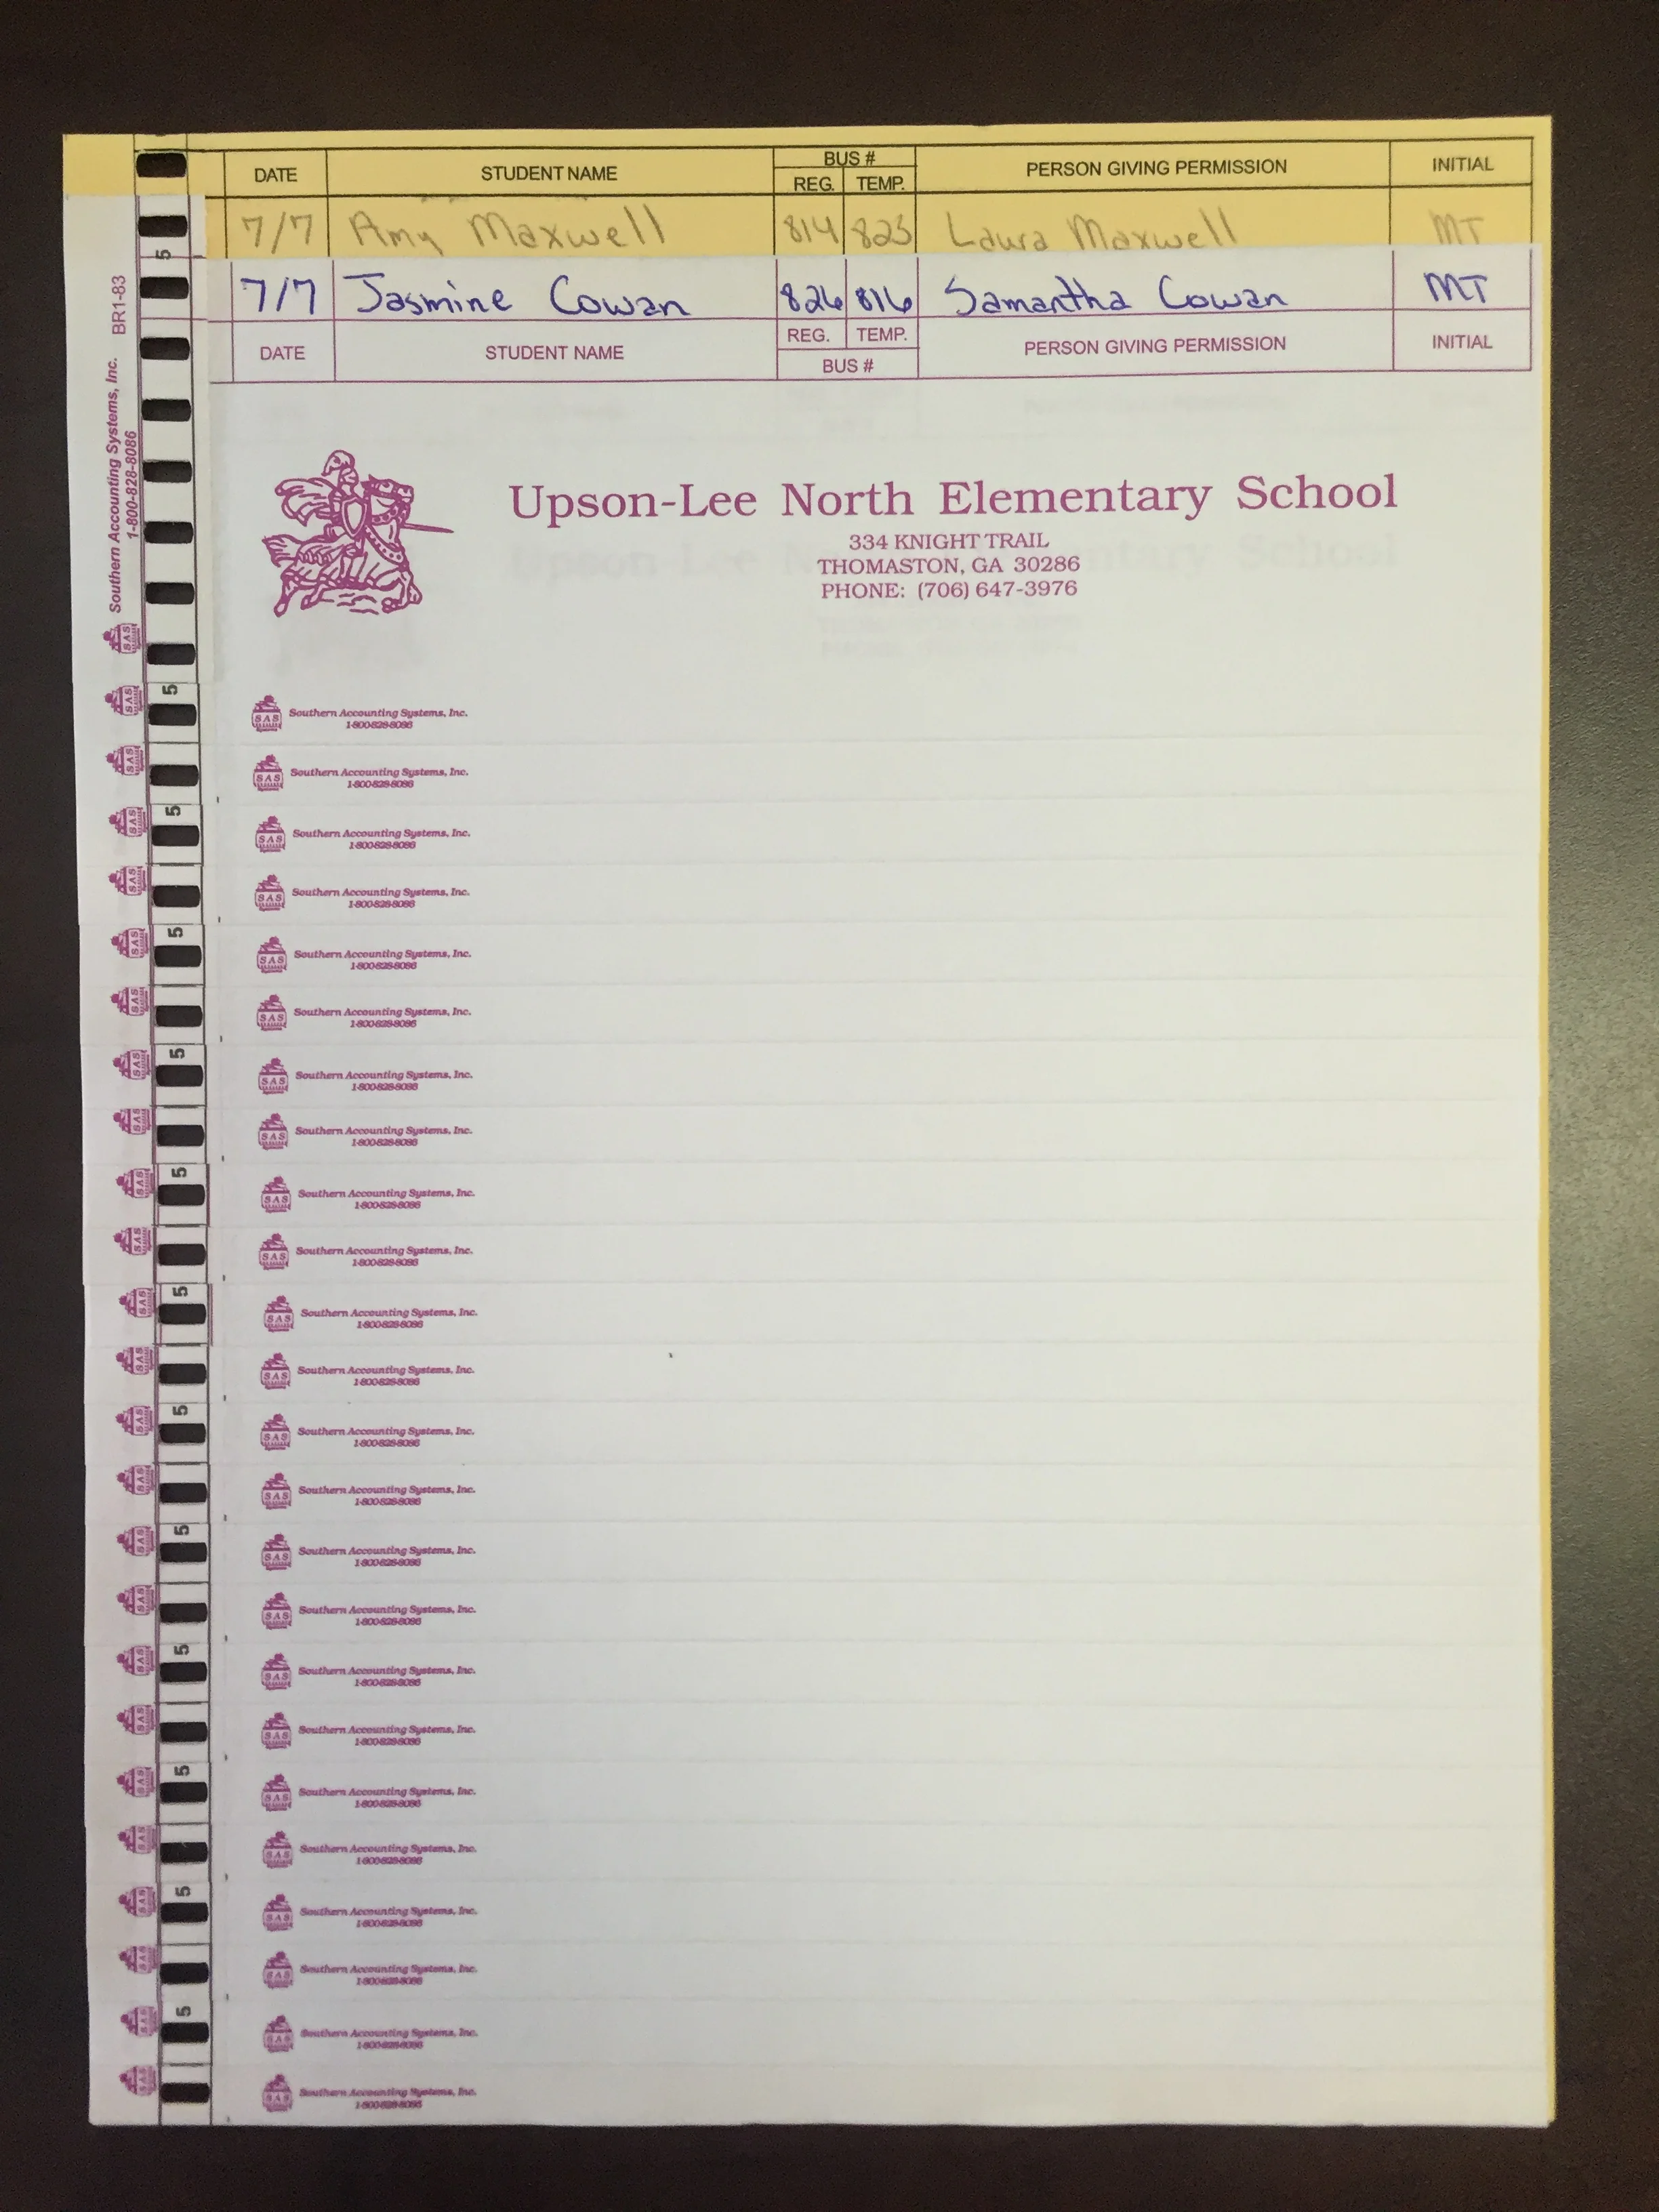 DATE STUDENT NAME BUS # REG. TEMP. PERSON GIVING PERMISSION INITIAL
7/7 Amy Maxwell 814 823 Laura Maxwell MT
7/7 Jasmine Cowan 826 816 Samantha Cowan MT
DATE STUDENT NAME REG. TEMP. BUS # PERSON GIVING PERMISSION INITIAL
Southern Accounting Systems, Inc. BR1-83
1-800-828-8086
Upson-Lee North Elementary School
334 KNIGHT TRAIL
THOMASTON, GA 30286
PHONE: (706) 647-3976
SAS Southern Accounting Systems, Inc.
1-800-828-8086
SAS Southern Accounting Systems, Inc.
1-800-828-8086
SAS Southern Accounting Systems, Inc.
1-800-828-8086
SAS Southern Accounting Systems, Inc.
1-800-828-8086
SAS Southern Accounting Systems, Inc.
1-800-828-8086
SAS Southern Accounting Systems, Inc.
1-800-828-8086
SAS Southern Accounting Systems, Inc.
1-800-828-8086
SAS Southern Accounting Systems, Inc.
1-800-828-8086
SAS Southern Accounting Systems, Inc.
1-800-828-8086
SAS Southern Accounting Systems, Inc.
1-800-828-8086
SAS Southern Accounting Systems, Inc.
1-800-828-8086
SAS Southern Accounting Systems, Inc.
1-800-828-8086
SAS Southern Accounting Systems, Inc.
1-800-828-8086
SAS Southern Accounting Systems, Inc.
1-800-828-8086
SAS Southern Accounting Systems, Inc.
1-800-828-8086
SAS Southern Accounting Systems, Inc.
1-800-828-8086
SAS Southern Accounting Systems, Inc.
1-800-828-8086
SAS Southern Accounting Systems, Inc.
1-800-828-8086
SAS Southern Accounting Systems, Inc.
1-800-828-8086
SAS Southern Accounting Systems, Inc.
1-800-828-8086
SAS Southern Accounting Systems, Inc.
1-800-828-8086
SAS Southern Accounting Systems, Inc.
1-800-828-8086
SAS Southern Accounting Systems, Inc.
1-800-828-8086
SAS Southern Accounting Systems, Inc.
1-800-828-8086